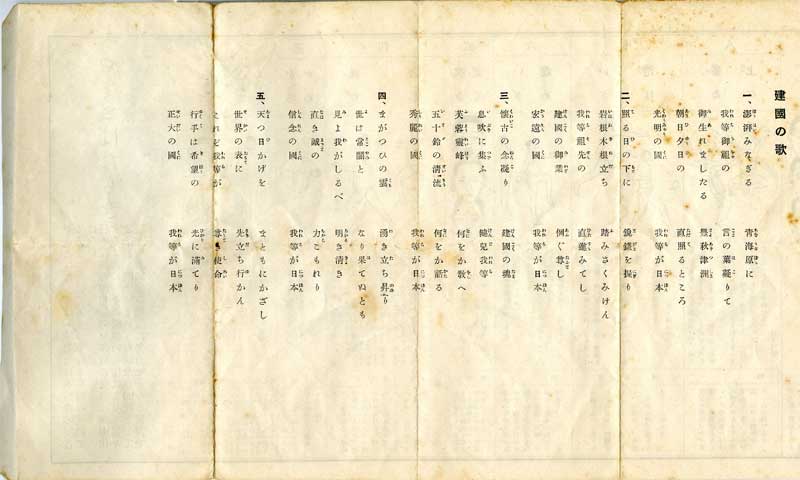 建國の歌
一、澎湃みなぎる　青海原に
我等御祖の　言の葉凝りて
御生れましたる　豐秋津洲
朝日夕日の　直照るところ
光明の國　我等が日本
二、照る日の下に　を握り
岩根木根立ち　踏みさくみけん
我等祖先の　直進みてし
建國の御業　ぐ尊し
宏遠の國　我等が日本
三、懷古の念凝り　建國の魂
息吹に集ふ　健兒我等
芙蓉靈峰　何をか教へ
五十鈴の清流　何をか語る
秀麗の國　我等が日本
四、まがつひの雲　湧き立ち昇り
世は常闇と　なり果てぬとも
見よ我がしるべ　明き清き
直き誠の　力こもれり
信念の國　我等が日本
五、天つ日かげを　まともにかざし
世界の表に　先立ち行かん
これぞ我等が　尊き使命
行手は希望の　光に滿てり
正大の國　我等が日本